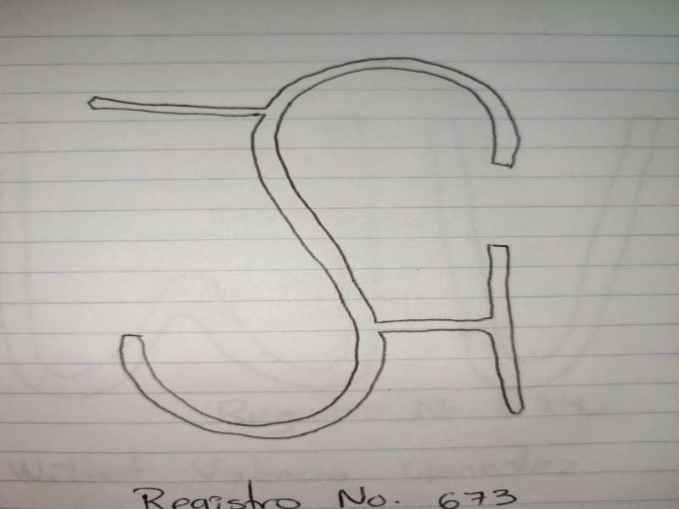 Registro No. 673